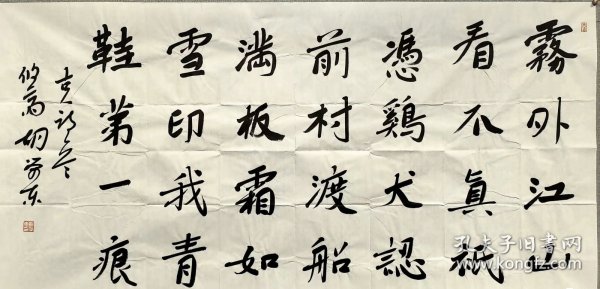 霧外江山
看不真祇
憑鷄犬認
前村渡船
滿板霜如
雪印我青
鞋第一痕
孔夫子旧书网
www.kongfz.com